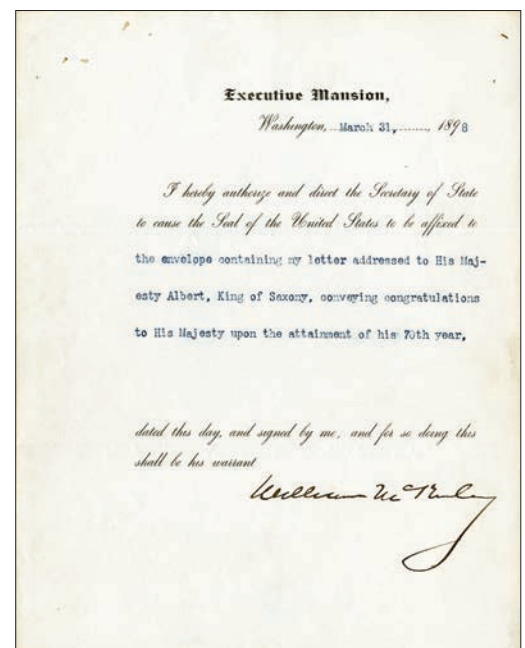 Executive Mansion,
Washington, March 31, 1898
I hereby authorize and direct the Secretary of State
to cause the Seal of the United States to be affixed to
the envelope containing my letter addressed to His Maj-
esty Albert, King of Saxony, conveying congratulations
to His Majesty upon the attainment of his 70th year,
dated this day, and signed by me, and for so doing this
shall be his warrant
William McKinley